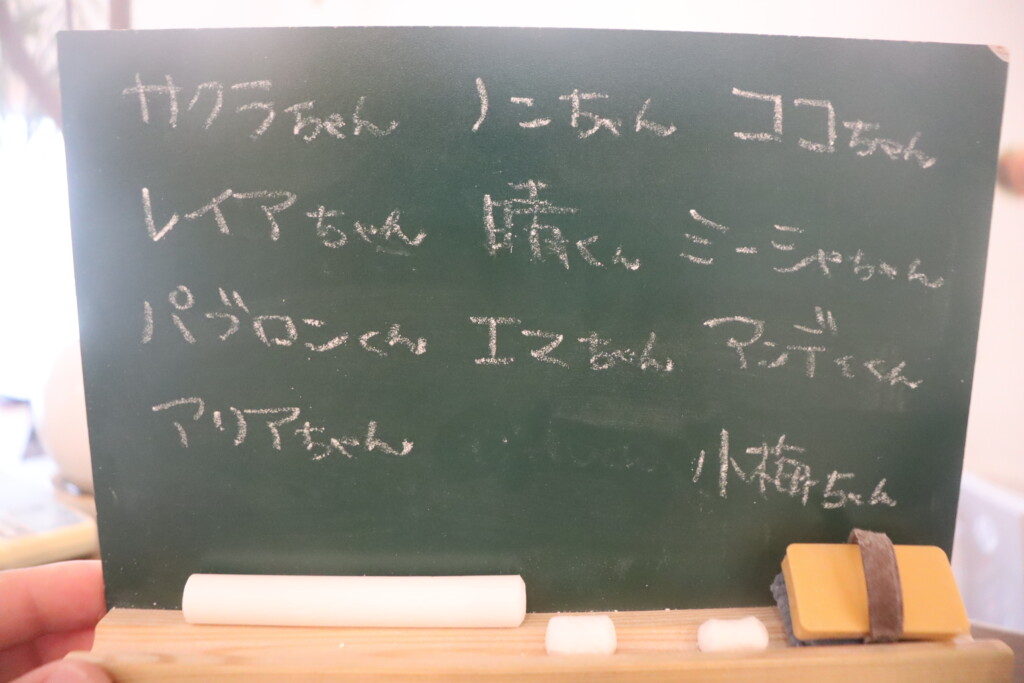 サクラちゃん ノニちゃん ココちゃん
レイアちゃん 晴くん ミーシャちゃん
パブロンくん エマちゃん アンディくん
アリアちゃん 小梅ちゃん